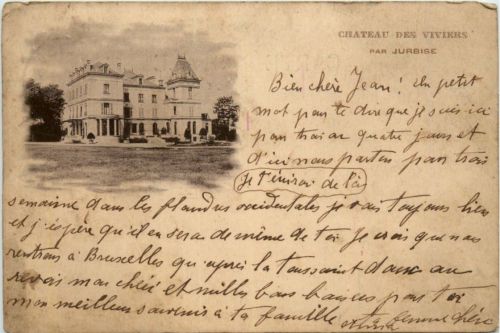 CHATEAU DES VIVIERS
PAR JURBISE
Bien chère Jean! Un petit
mot pour te dire que je suis ici
pour trois ou quatre jours et
d'ici nous partons pour trois
Je t'écrirai de là
semaines dans les flandres occidentales je vais toujours bien
et j'espère qu'il en sera de même de toi Je crois que nous
rentrons à Bruxelles qu'après la toussaint donc au
revoir mon chéri et milles bons baisers pour toi
mon meilleurs souvenir à ta famille ta femme chérie